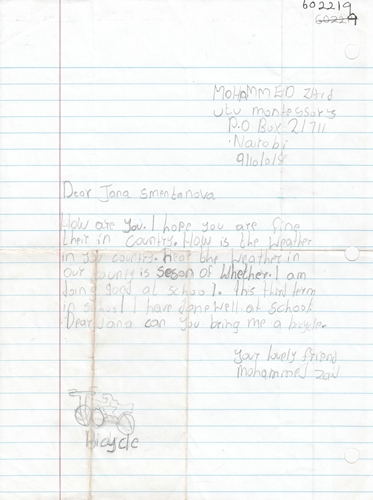 602219
MOHAMMED ZAID
utu montessory
P.O Box 21711
Nairobi
9/10/018
Dear Jana Smentanova
How are you. I hope you are fine
their in country. How is the weather
in your country. hear the weather in
our county is seson of whether. I am
doing good at school. This third term
in school I have done well at school
Dear Jana can you bring me a bicycle.
Your lovely friend
mohammed zaid
Bicycle